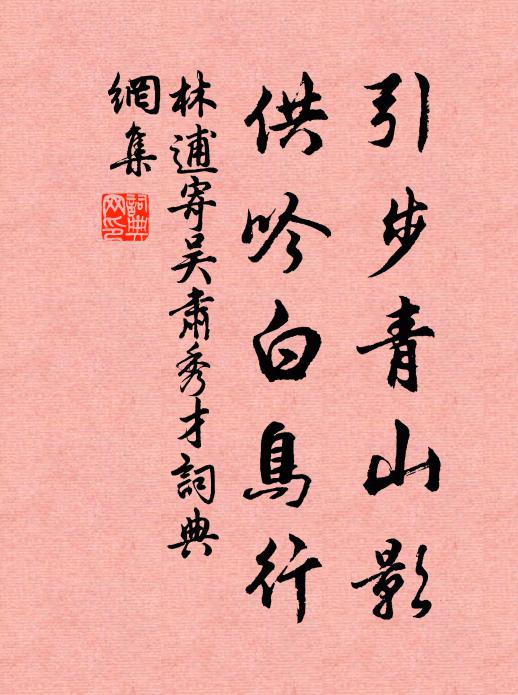 引步青山影
供吟白鳥行
林逋寄吴肅秀才詞典
網集
詞典
网印